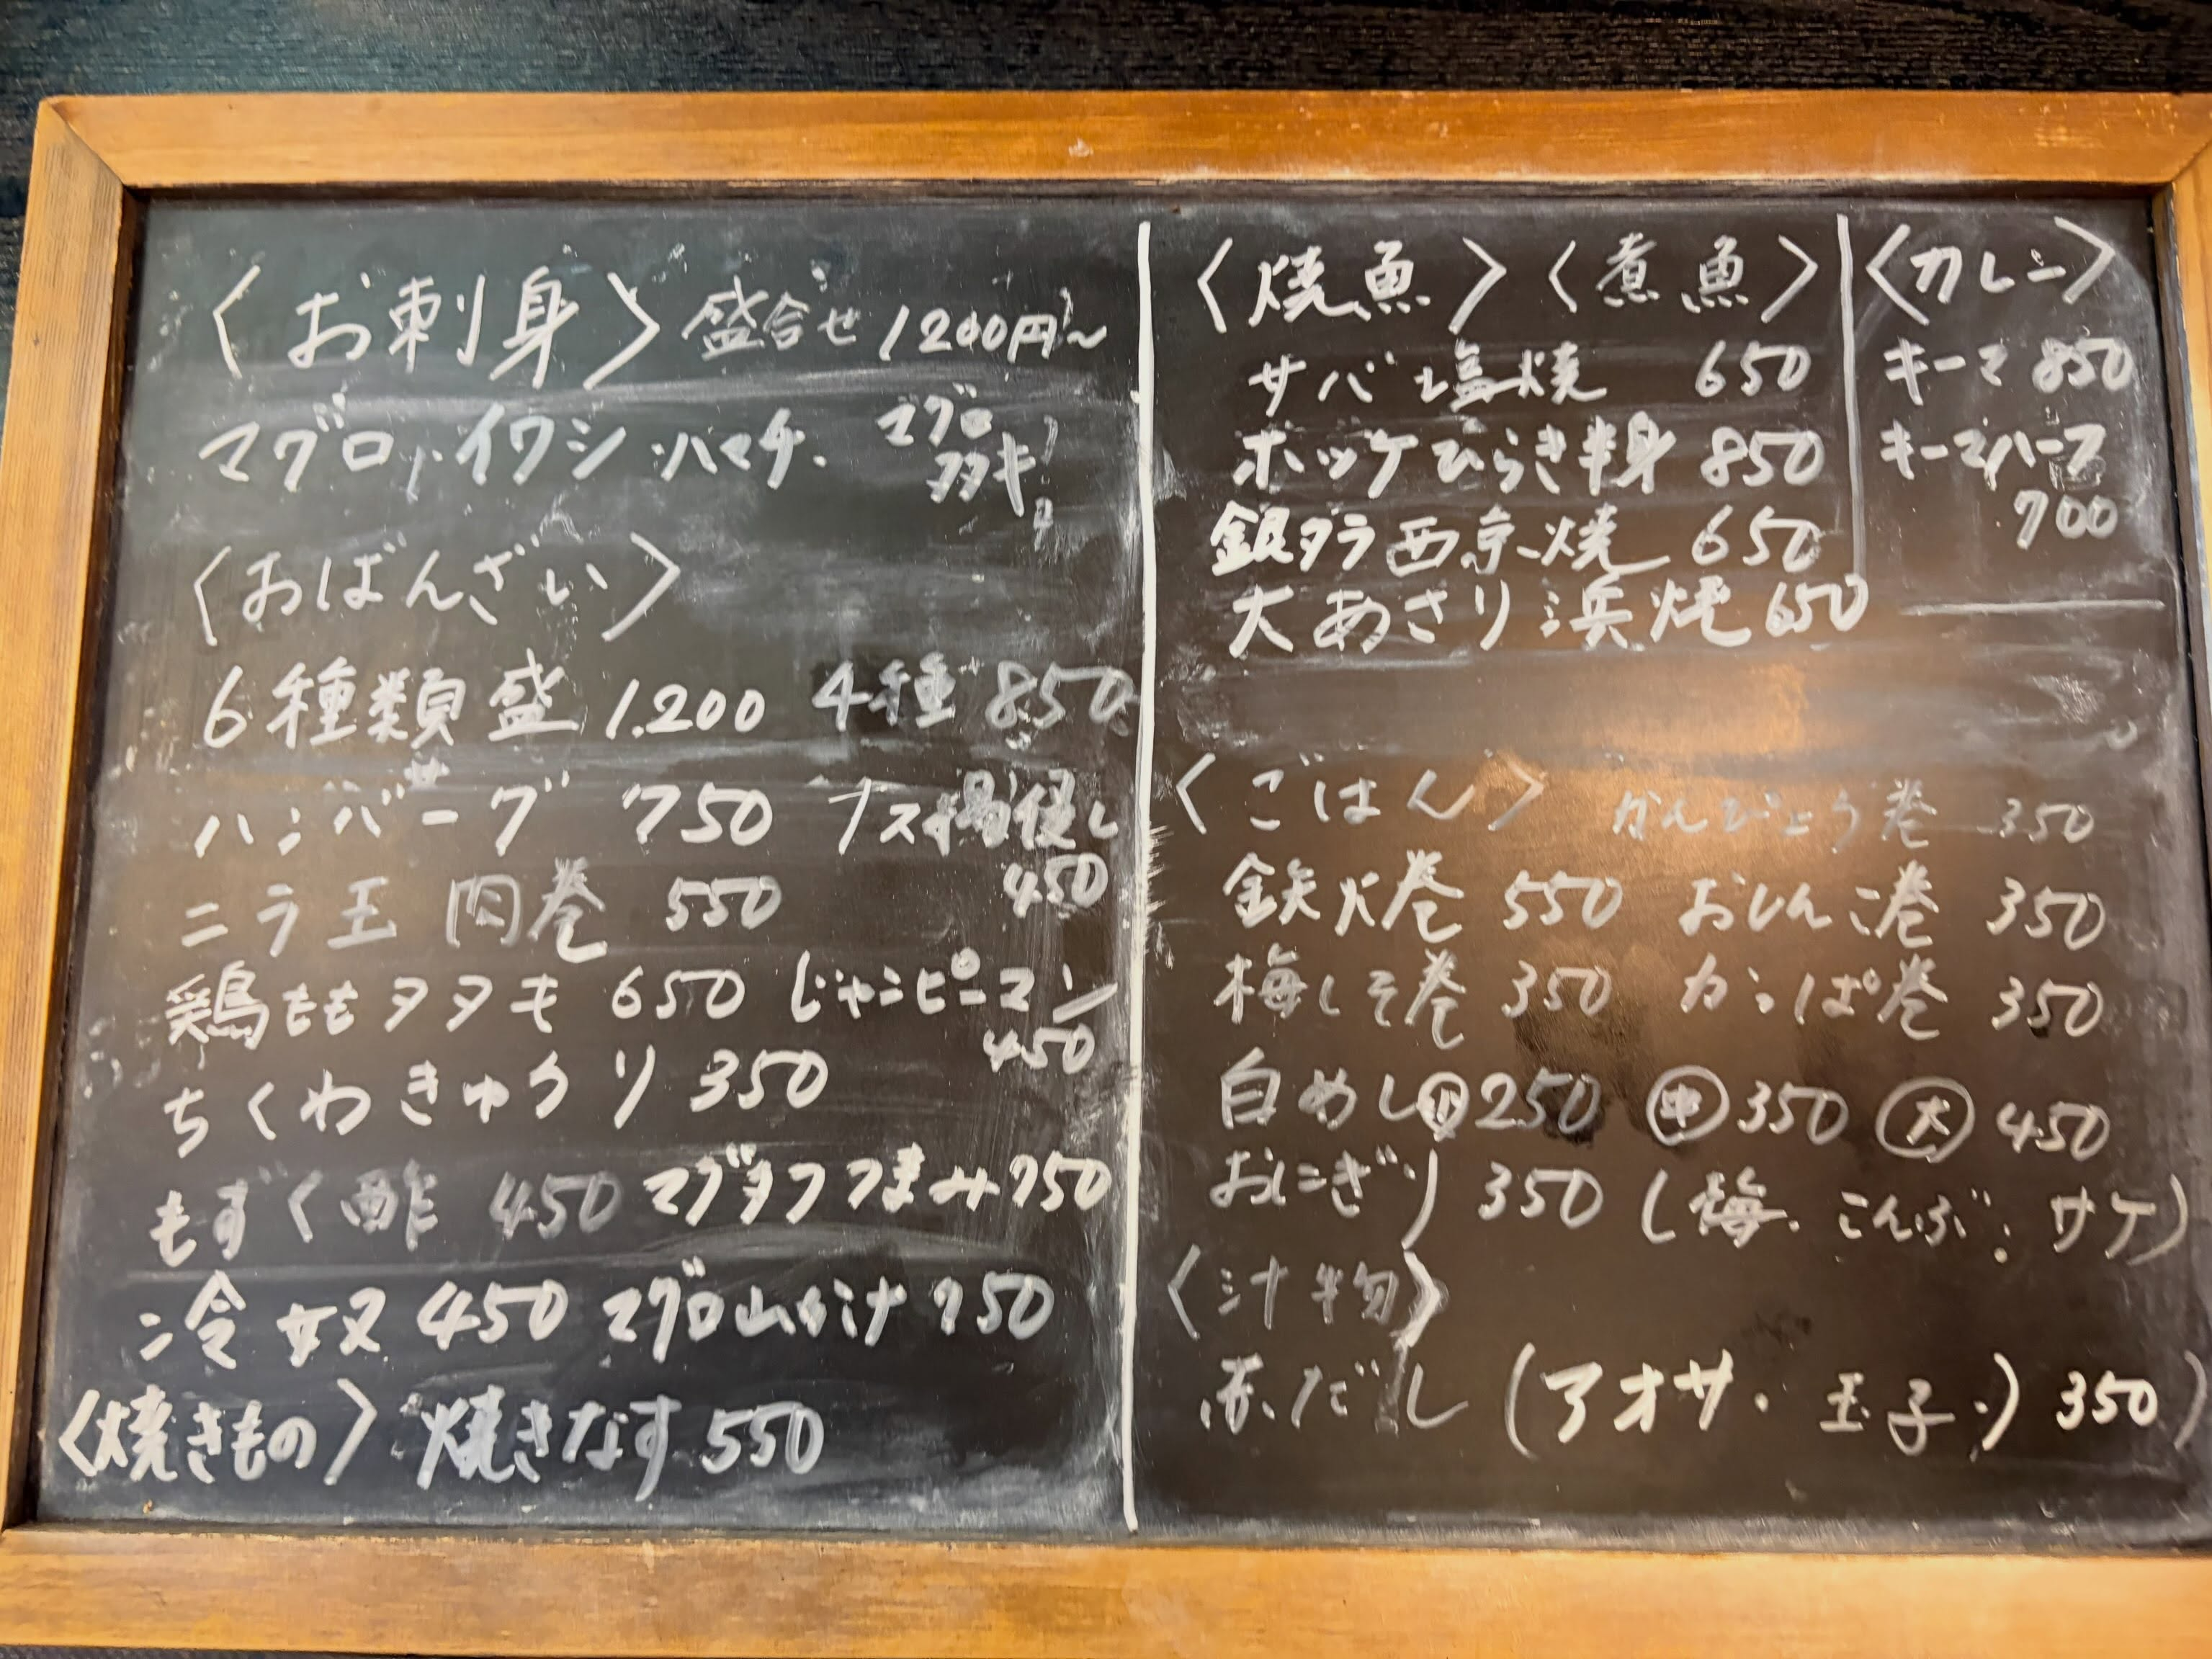 〈お刺身〉盛合せ 1200円～
マグロ、イワシ・ハマチ・マグロタタキ
〈おばんざい〉
6種類盛 1.200 4種 850
ハンバーグ 750 ナス揚浸し 450
ニラ玉 肉巻 550
鶏ももタタキ 650 じゃこピーマン 450
ちくわきゅうり 350
もずく酢 450 マグタクつまみ 750
冷奴 450 マグロ山かけ 750
〈焼きもの〉焼きなす 550
〈焼魚〉〈煮魚〉
サバ塩焼 650
ホッケひらき半身 850
銀ダラ西京焼 650
大あさり浜焼 650
〈カレー〉
キーマ 850
キーマハーフ
700
〈ごはん〉 かんぴょう巻 350
鉄火巻 550 おしんこ巻 350
梅しそ巻 350 かっぱ巻 350
白めし 小 250 中 350 大 450
おにぎり 350 (梅・こんぶ・サケ)
〈汁物〉
赤だし (アオサ・玉子・) 350